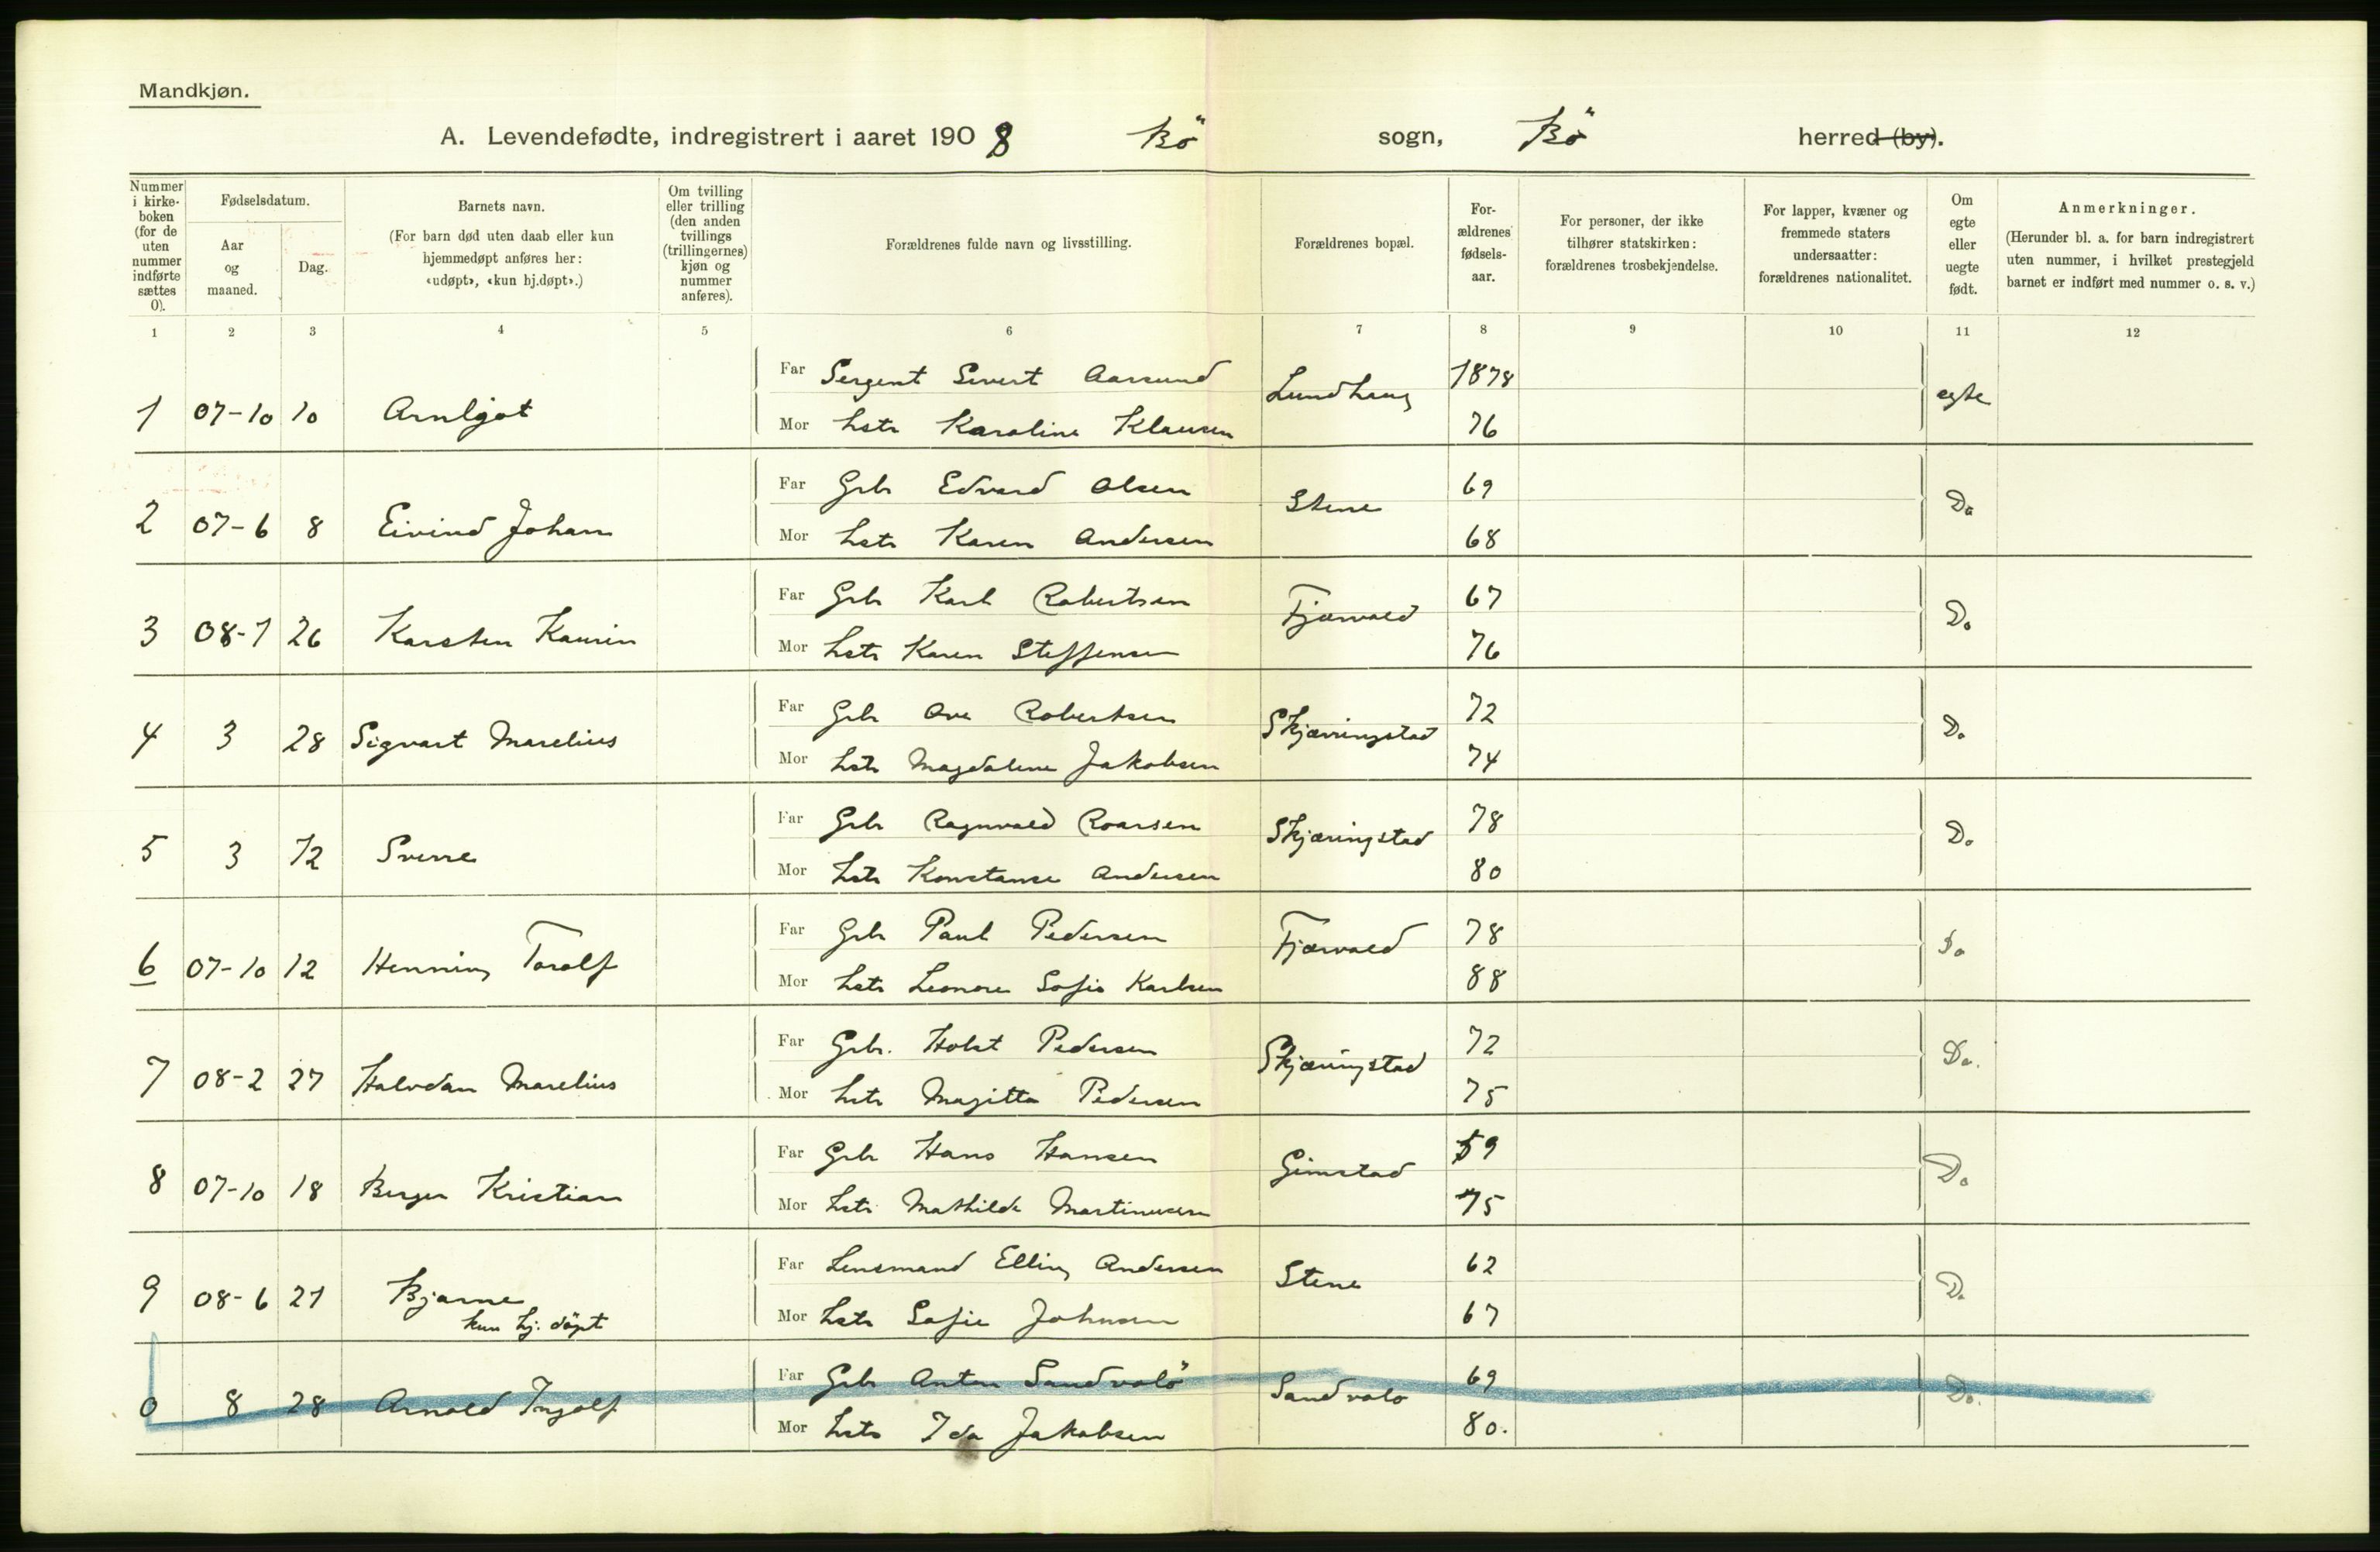 Mandkjøn.
A. Levendefødte, indregistrert i aaret 1908 Bö sogn, Bö herred (by).
Nummer i kirke-boken (for de uten nummer indførte sættes 0).
Fødselsdatum.
Aar og maaned.
Dag.
Barnets navn.
(For barn død uten daab eller kun hjemmedøpt anføres her: «udøpt», «kun hj.døpt».)
Om tvilling eller trilling (den anden tvillings (trillingernes) kjøn og nummer anføres).
Forældrenes fulde navn og livsstilling.
Forældrenes bopæl.
For-ældrenes fødsels-aar.
For personer, der ikke tilhører statskirken: forældrenes trosbekjendelse.
For lapper, kvæner og fremmede staters undersaatter: forældrenes nationalitet.
Om egte eller uegte født.
Anmerkninger.
(Herunder bl. a. for barn indregistrert uten nummer, i hvilket prestegjeld barnet er indført med nummer o. s. v.)
1 2 3 4 5 6 7 8 9 10 11 12
Far Sergent Sivert Aarsund Lundhaug 1878 egte
1 07-10 10 Arnljot
Mor hstr Karoline Klausen 76
Far Gbr Edvard Olsen Stene 69 Do
2 07-6 8 Eivind Johan
Mor hstr Karen Andersen 68
Far Gbr Karl Robertsen Fjærvold 67 Do
3 08-1 26 Karsten Kaurin
Mor hstr Karen Steffensen 76
Far Gbr Ove Robertsen Skjærringstad 72 Do
4 3 28 Sigvart Marelius
Mor hstr Magdalene Jakobsen 74
Far Gbr Ragnvald Roarsen Skjæringstad 78 Do
5 3 12 Sverre
Mor hstr Konstanse Andersen 80
Far Gbr Paul Pedersen Fjærvold 78 Do
6 07-10 12 Henning Toralf
Mor hstr Leonore Sofie Karlsen 88
Far Gbr. Holst Pedersen Skjæringstad 72 Do.
7 08-2 27 Halvdan Marelius
Mor hstr Magitta Pedersen 75
Far Gbr Hans Hansen Gimstad 59 Do
8 07-10 18 Berger Kristian
Mor hstr Mathilde Martinusen 75
Far Lensmand Elling Andersen Stene 62 Do
9 08-6 21 Bjarne
kun hj. döpt
Mor hstr Sofie Johnsen 67
Far Gbr Anton Sandvolö Sandvolo 69 Do.
0 8 28 Arnold Ingolf
Mor hstr Ida Jakobsen 80.